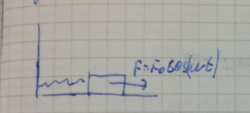 F=F₀cos(ωt)